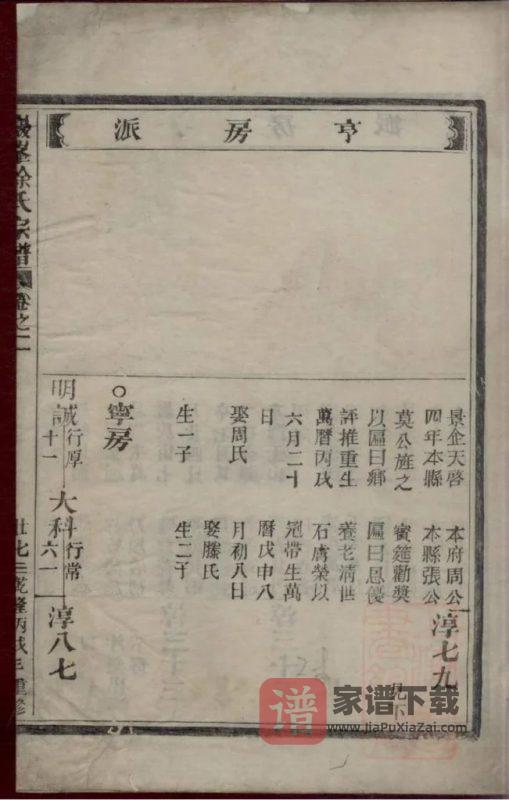 亨房派
景企天啓
四年本縣
莫公旌之
以匾曰鄉
評推重生
萬曆丙戌
六月二十
日
娶周氏
生一子
本府周公
本縣張公
賓筵勸獎
匾曰恩優
養老清世
石膚榮以
冠帶生萬
曆戊申八
月初八日
娶滕氏
生二子
淳七九
見下
○寧房
明誠行厚十一
大科行常六一
淳八七
徐氏宗譜
卷之二
乾隆丙戌年重修
譜
家谱下载
www.JiaPuXiaZai.com